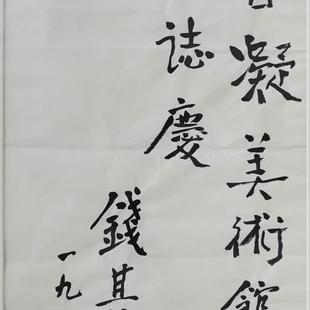 凝美術館
誌慶
錢其
一九